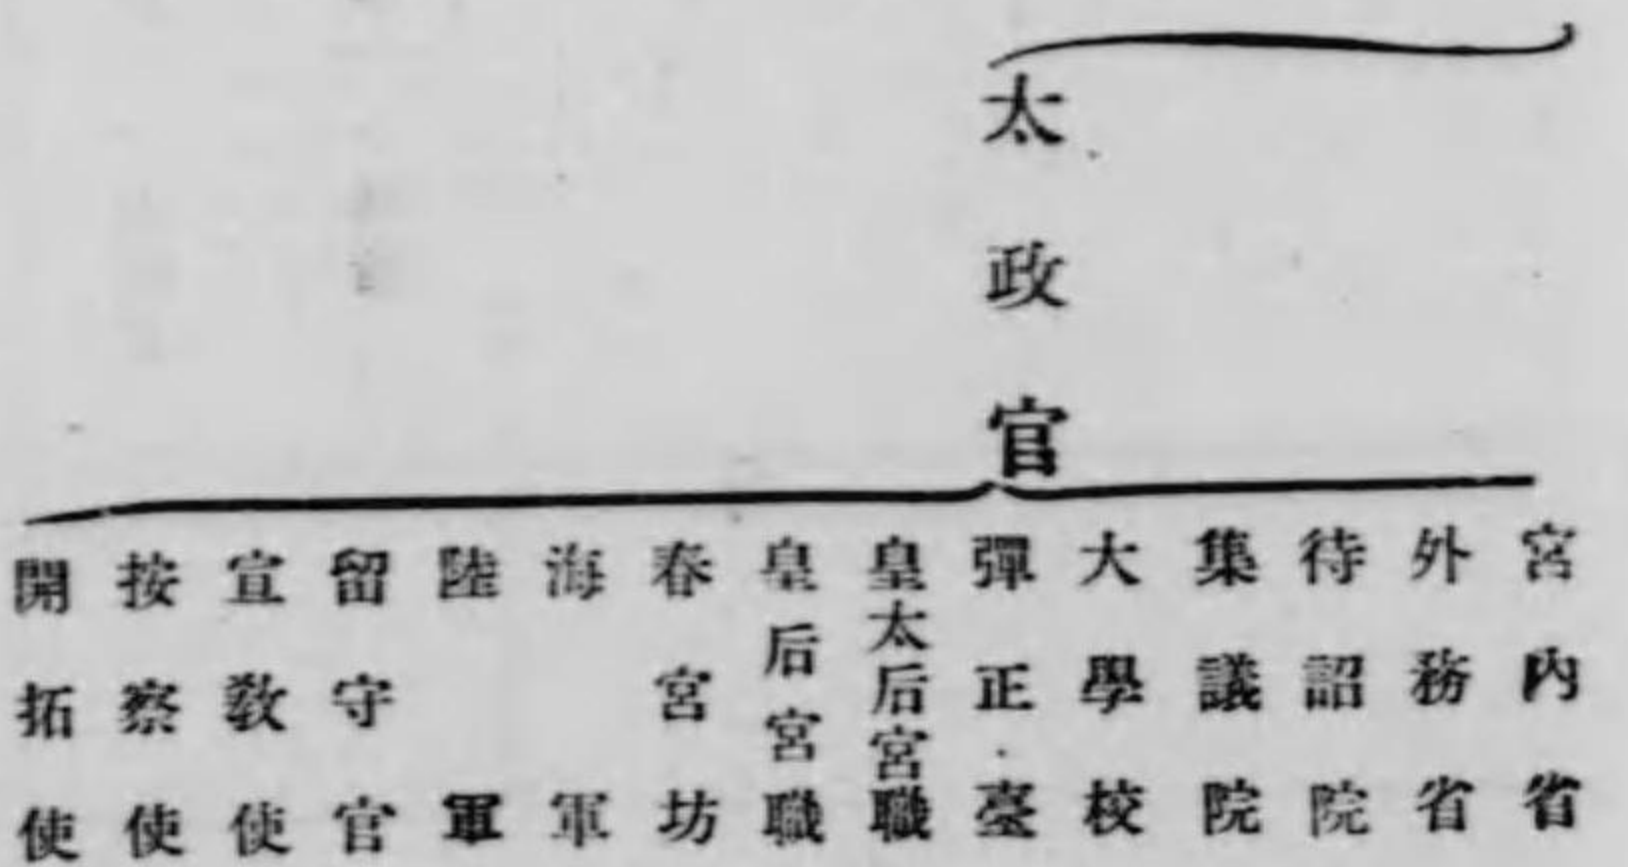 太政官
宮內省
外務省
待詔院
集議院
大學校
彈正臺
皇太后宮職
皇后宮職
春宮坊
海軍
陸軍
留守官
宣敎使
按察使
開拓使